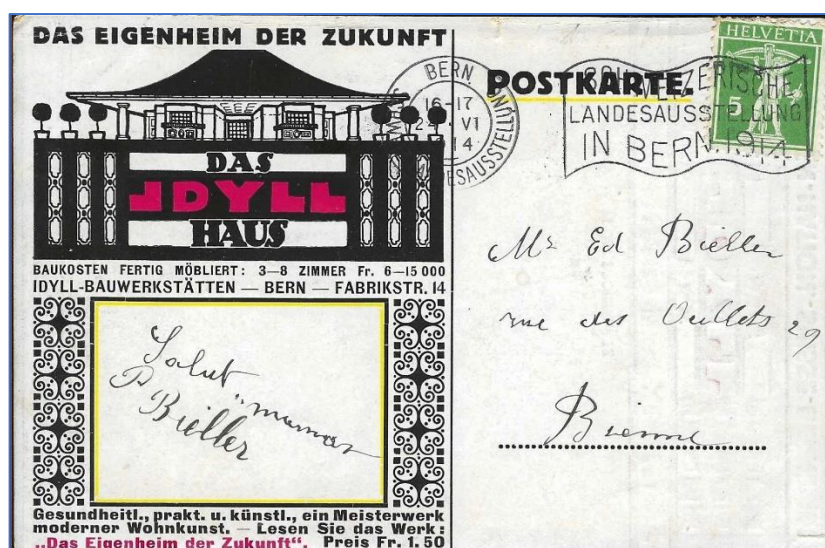 DAS EIGENHEIM DER ZUKUNFT
DAS
IDYLL
HAUS
BAUKOSTEN FERTIG MÖBLIERT: 3–8 ZIMMER Fr. 6–15 000
IDYLL-BAUWERKSTÄTTEN — BERN — FABRIKSTR. 14
Salut
P. Bieller
Gesundheitl., prakt. u. künstl., ein Meisterwerk
moderner Wohnkunst. — Lesen Sie das Werk:
„Das Eigenheim der Zukunft“. Preis Fr. 1.50
BERN
16-17
VI
14
LANDESAUSSTELLUNG
POSTKARTE.
SCHWEIZERISCHE
LANDESAUSSTELLUNG
IN BERN 1914
HELVETIA
5
Mr Ed Bieller
rue des Oeillets 29
Bienne